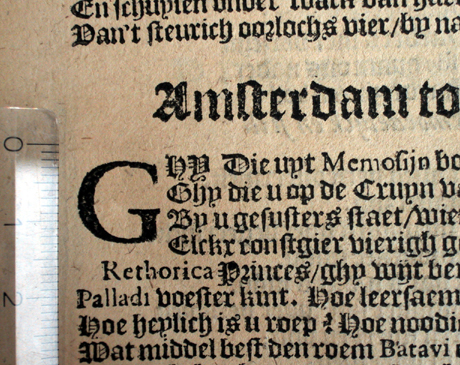 En schuylen onder
Van't steurich oorlochs vier/by na
Amsterdam to
GHY Die uyt Memosijn
Ghy die u op de Cruyn
By u gesusters staet/wie
Elckr constgier vierigh
Rethorica Princes/ghy wijt
Palladi voester kint. Hoe leersaem
Hoe heylich is u roep? Hoe
Wat middel best den roem Batavi
0
1
2